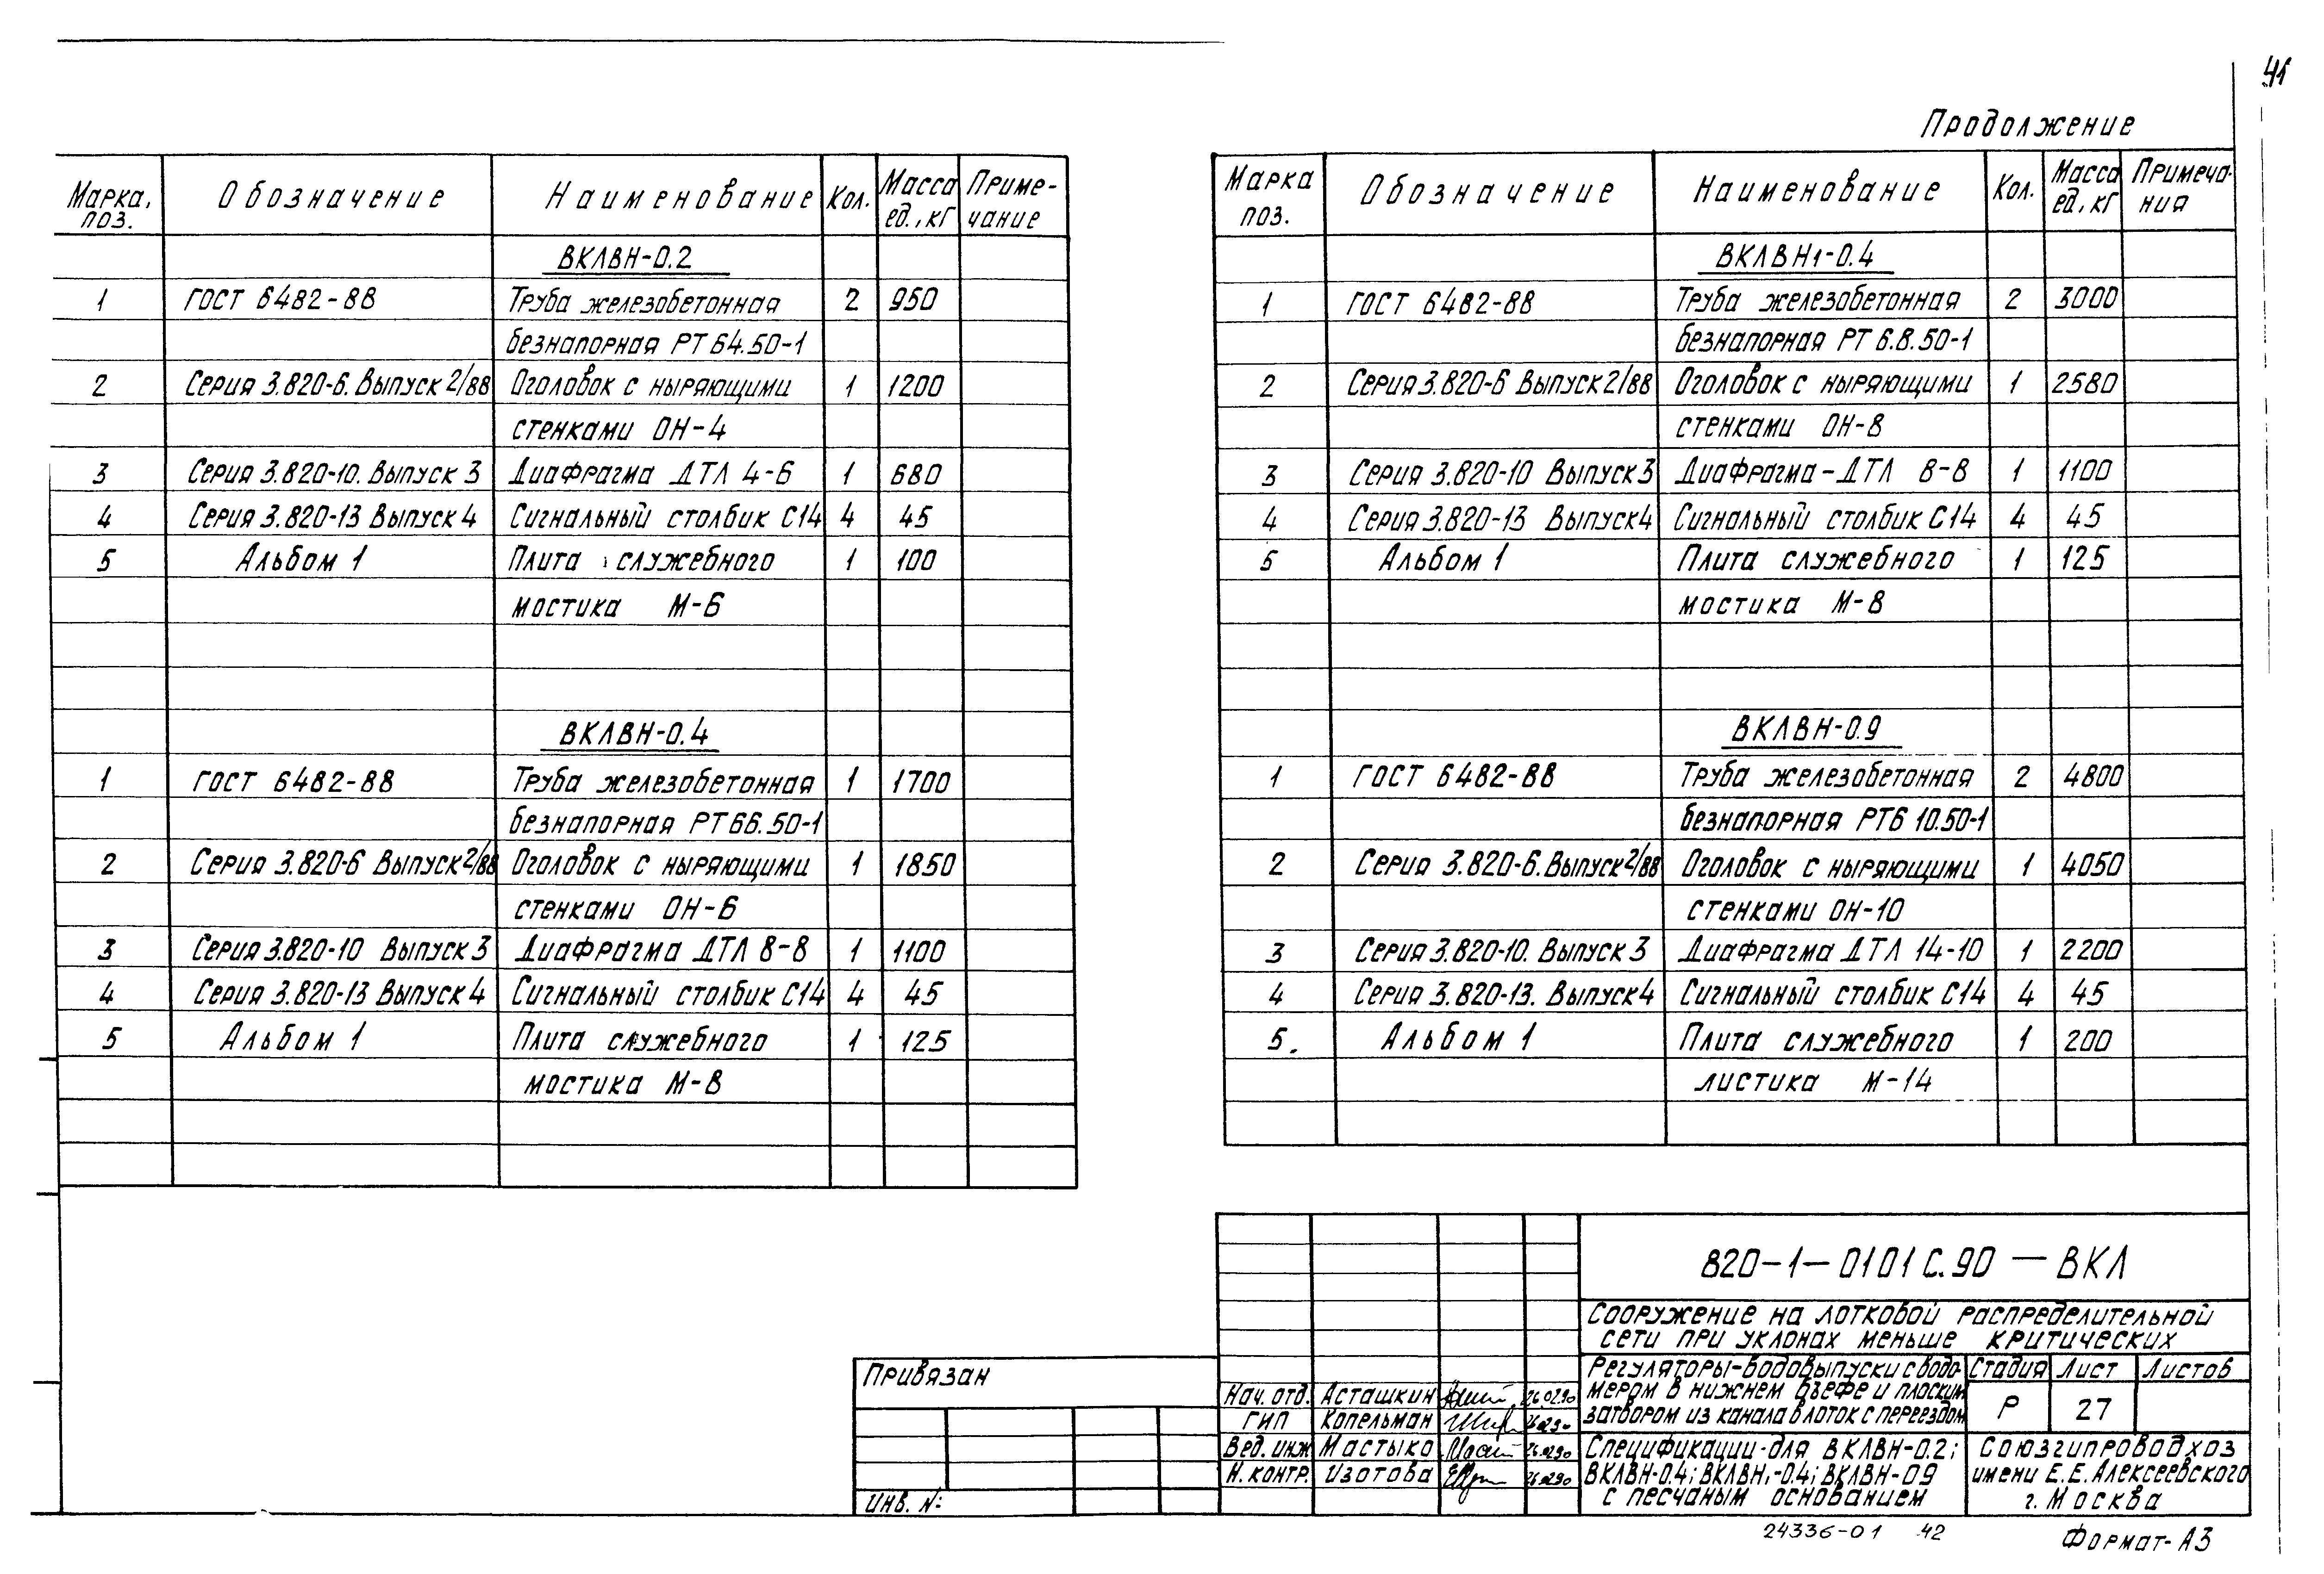 41
Продолжение
Марка, поз. Обозначение Наименование Кол. Масса ед., кг Приме-чание
ВКЛВН-0.2
1 ГОСТ 6482-88 Труба железобетонная 2 950
безнапорная РТ 64.50-1
2 Серия 3.820-6. Выпуск 2/88 Оголовок с ныряющими 1 1200
стенками ОН-4
3 Серия 3.820-10. Выпуск 3 Диафрагма ДТЛ 4-6 1 680
4 Серия 3.820-13 Выпуск 4 Сигнальный столбик С14 4 45
5 Альбом 1 Плита служебного 1 100
мостика М-6
ВКЛВН-0.4
1 ГОСТ 6482-88 Труба железобетонная 1 1700
безнапорная РТ 66.50-1
2 Серия 3.820-6 Выпуск 2/88 Оголовок с ныряющими 1 1850
стенками ОН-6
3 Серия 3.820-10 Выпуск 3 Диафрагма ДТЛ 8-8 1 1100
4 Серия 3.820-13 Выпуск 4 Сигнальный столбик С14 4 45
5 Альбом 1 Плита служебного 1 125
мостика М-8
Марка поз. Обозначение Наименование Кол. Масса ед., кг Примеча-ния
ВКЛВН1-0.4
1 ГОСТ 6482-88 Труба железобетонная 2 3000
безнапорная РТ 6.8.50-1
2 Серия 3.820-6 Выпуск 2/88 Оголовок с ныряющими 1 2580
стенками ОН-8
3 Серия 3.820-10 Выпуск 3 Диафрагма-ДТЛ 8-8 1 1100
4 Серия 3.820-13 Выпуск 4 Сигнальный столбик С14 4 45
5 Альбом 1 Плита служебного 1 125
мостика М-8
ВКЛВН-0.9
1 ГОСТ 6482-88 Труба железобетонная 2 4800
безнапорная РТ6 10.50-1
2 Серия 3.820-6. Выпуск 2/88 Оголовок с ныряющими 1 4050
стенками ОН-10
3 Серия 3.820-10. Выпуск 3 Диафрагма ДТЛ 14-10 1 2200
4 Серия 3.820-13. Выпуск 4 Сигнальный столбик С14 4 45
5. Альбом 1 Плита служебного 1 200
листика М-14
Привязан
Инв. №:
Нач. отд. Асташкин 26.02.90
ГИП Копельман 26.02.90
Вед. инж Мастыко 26.02.90
Н. контр. Изотова 26.02.90
820-1-0101С.90 — ВКЛ
Сооружение на лотковой распределительной
сети при уклонах меньше критических
Регуляторы-водовыпуски с водо-
мером в нижнем бъефе и плоским
затвором из канала в лоток с переездом
Стадия Лист Листов
Р 27
Спецификации для ВКЛВН-0.2;
ВКЛВН-0.4; ВКЛВН1-0.4; ВКЛВН-0.9
с песчаным основанием
Союзгипроводхоз
имени Е.Е. Алексеевского
г. Москва
24336-01 42
Формат-А3